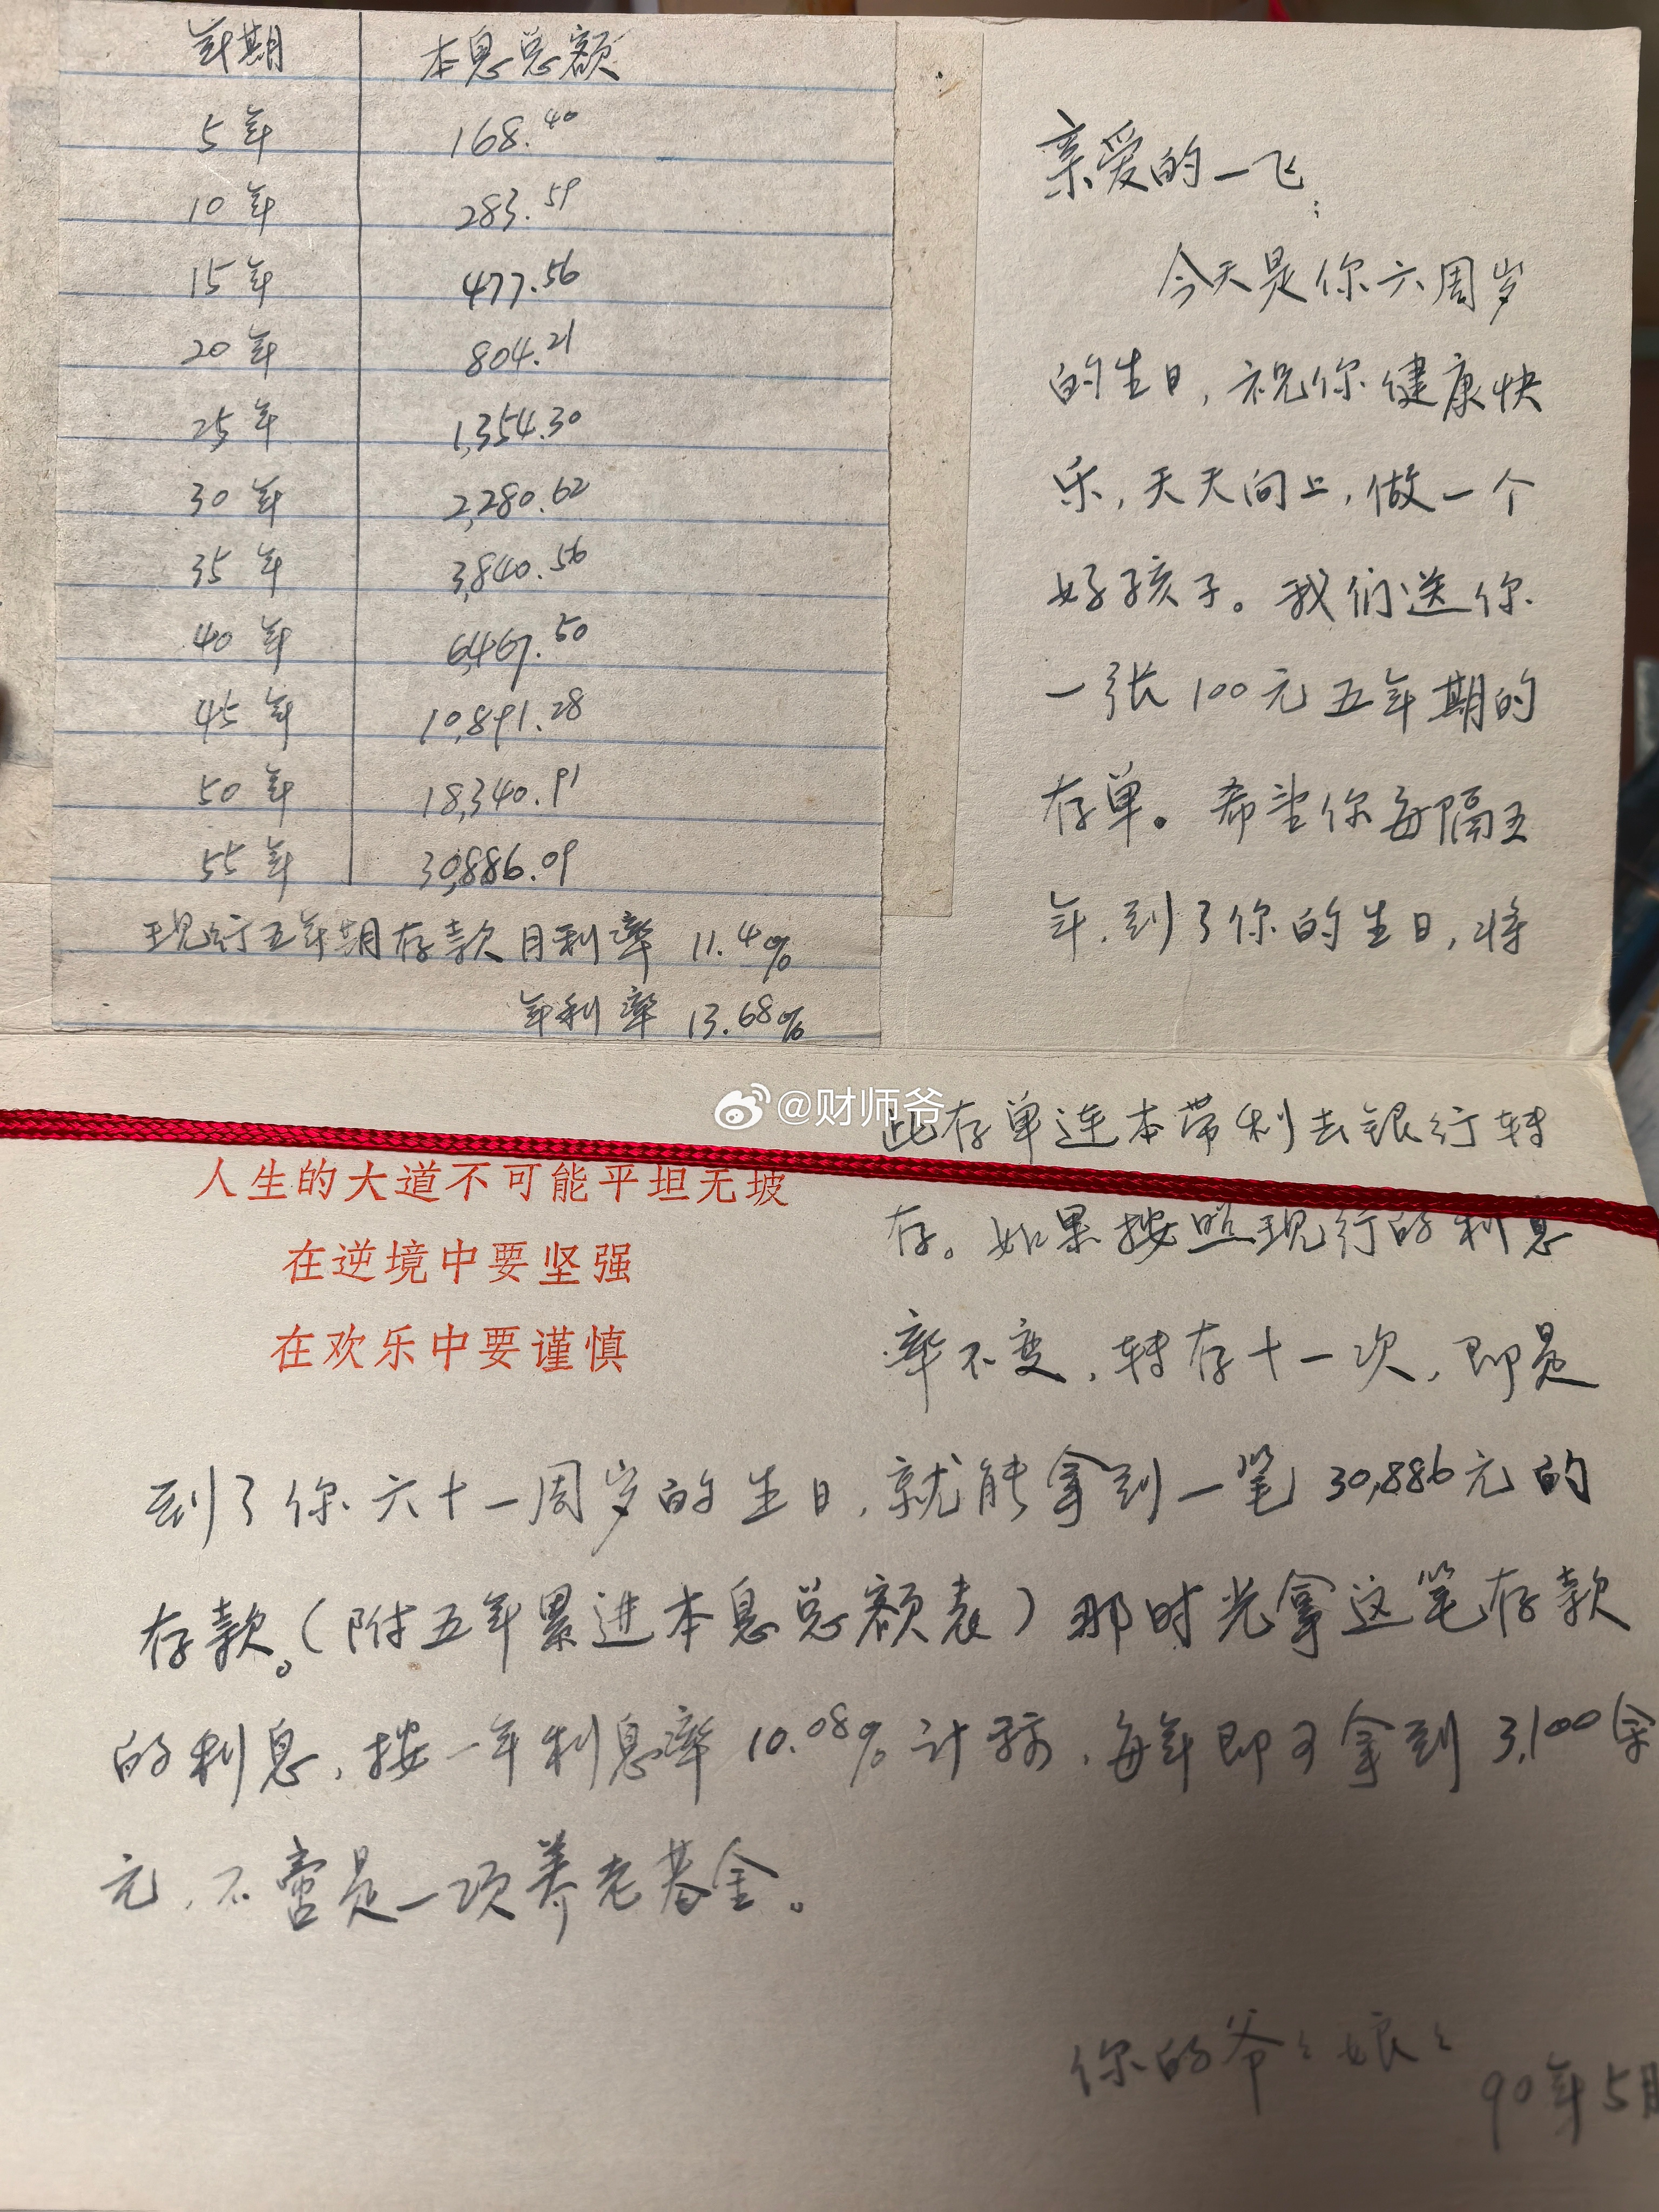 年期 本息总额
5年 168.40
10年 283.59
15年 477.56
20年 804.21
25年 1,354.30
30年 2,280.62
35年 3,840.56
40年 6,467.50
45年 10,891.28
50年 18,340.91
55年 30,886.09
现行五年期存款月利率 11.4‰
年利率 13.68%
亲爱的一飞:
今天是你六周岁
的生日,祝你健康快
乐,天天向上,做一个
好孩子。我们送你
一张100元五年期的
存单。希望你每隔五
年,到了你的生日,将
@财师爷
此存单连本带利去银行转
存。如果按照现行的利息
率不变,转存十一次,即是
人生的大道不可能平坦无坡
在逆境中要坚强
在欢乐中要谨慎
到了你六十一周岁的生日,就能拿到一笔30,886元的
存款。(附五年累进本息总额表)那时光拿这笔存款
的利息,按一年利息率10.08%计算,每年即可拿到3,100余
元,不啻是一项养老基金。
你的爷〻娘〻
90年5月